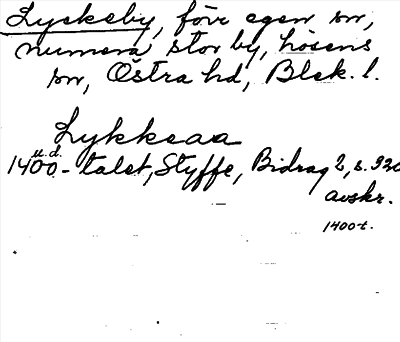 Lyckeby, förr egen sn,
numera stor by, Lösens
sn, Östra hd, Blek. l.
Lykkeaa
u.d.
1400-talet, Styffe, Bidrag 2, s. 320
avskr.
1400-t.